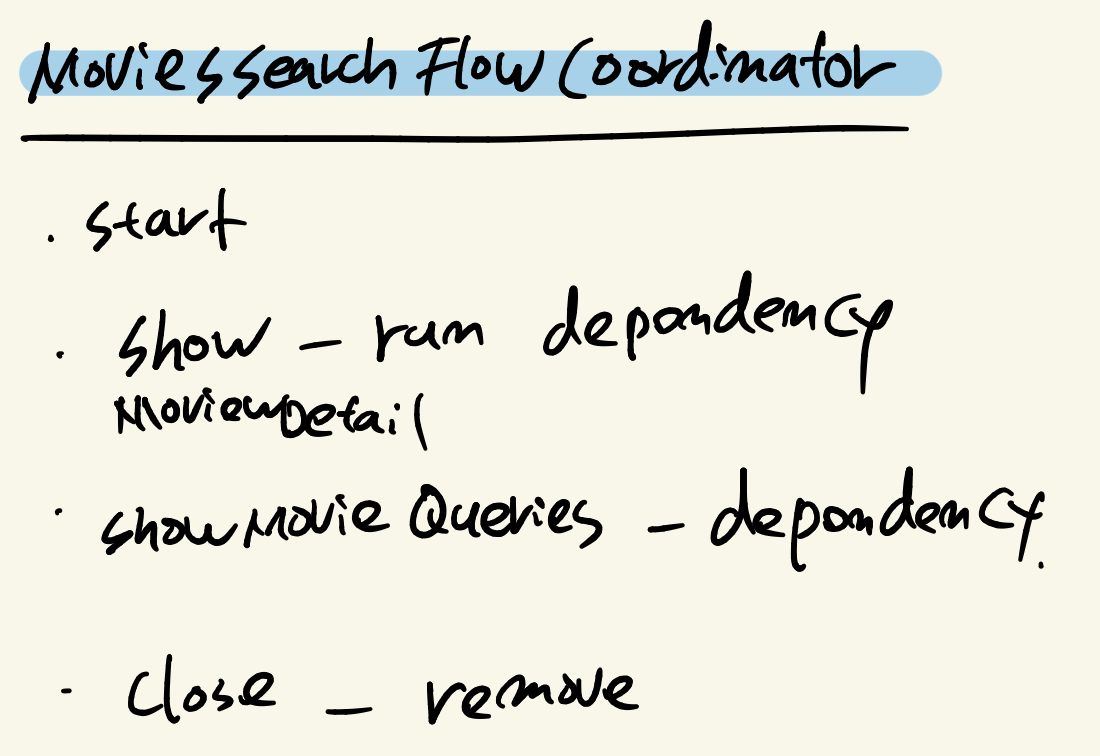 MoviesSearch Flow Coordinator
. start
. show – run dependency
MovieDetail
. showMovie Queries – dependency.
- close – remove